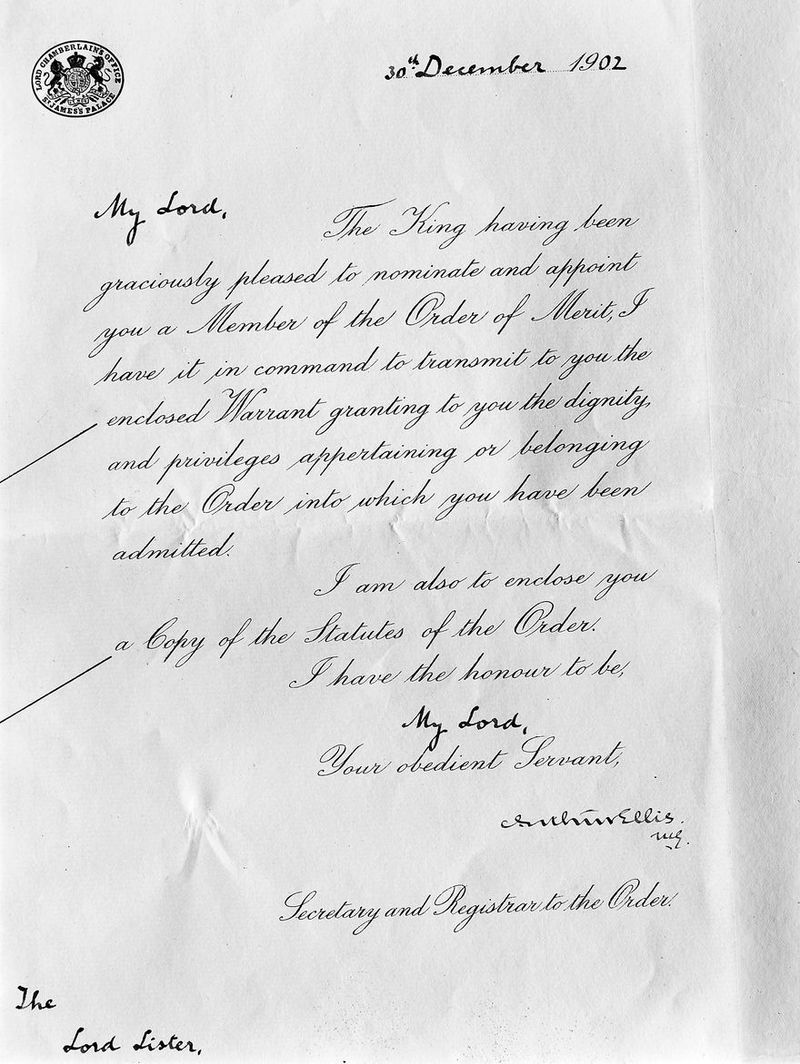 LORD CHAMBERLAIN'S OFFICE
ST JAMES'S PALACE
30th December 1902
My Lord,
The King having been
graciously pleased to nominate and appoint
you a Member of the Order of Merit, I
have it in command to transmit to you the
enclosed Warrant granting to you the dignity,
and privileges appertaining or belonging
to the Order into which you have been
admitted.
I am also to enclose you
a Copy of the Statutes of the Order.
I have the honour to be,
My Lord,
Your obedient Servant,
Arthur Ellis.
Secretary and Registrar to the Order.
The
Lord Lister,